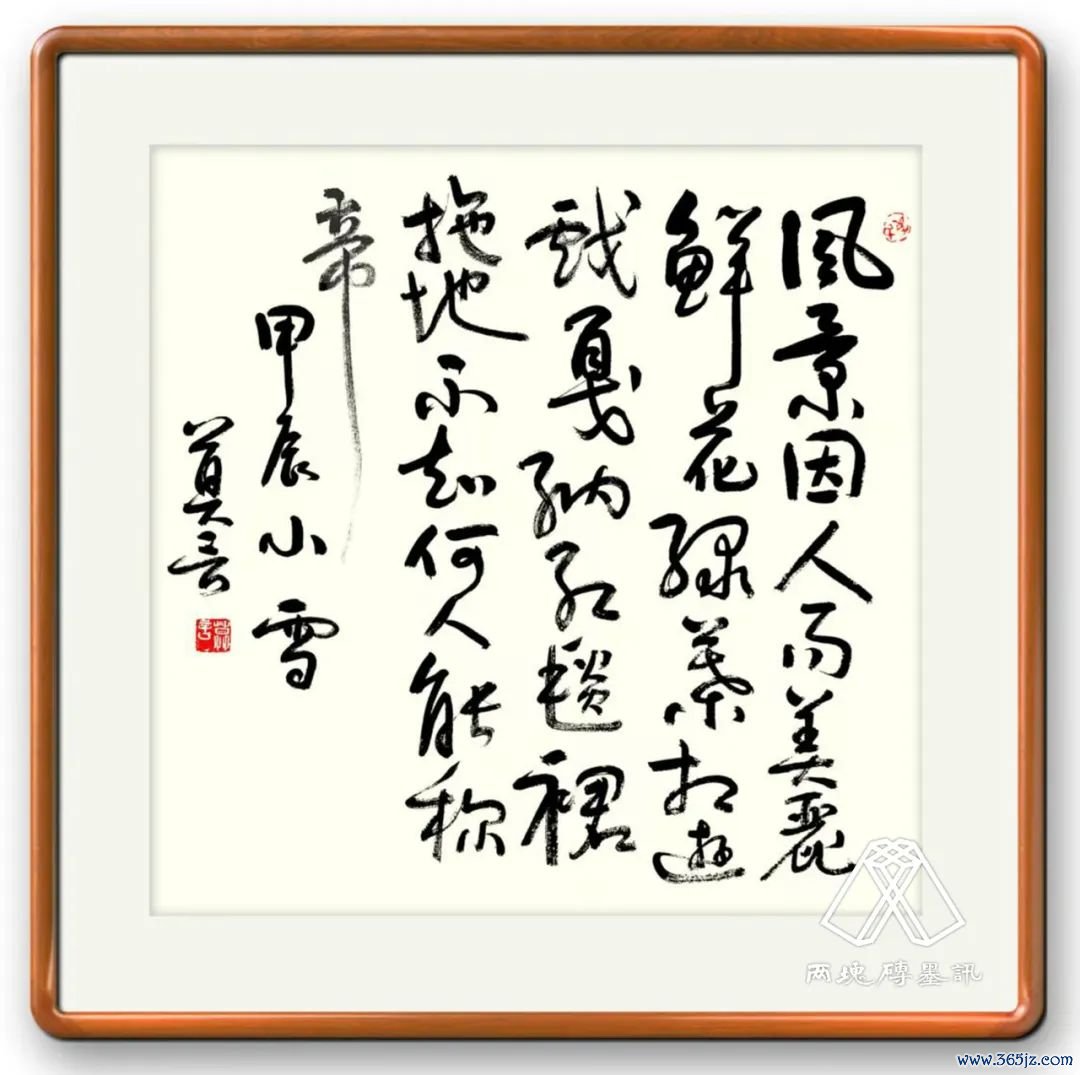 風景因人而美麗
鮮花綠葉相遊
戲戛納紅毯裙
拖地不知何人能称
帝
甲辰小雪
莫言
两塊磚墨訊
www.365jz.com